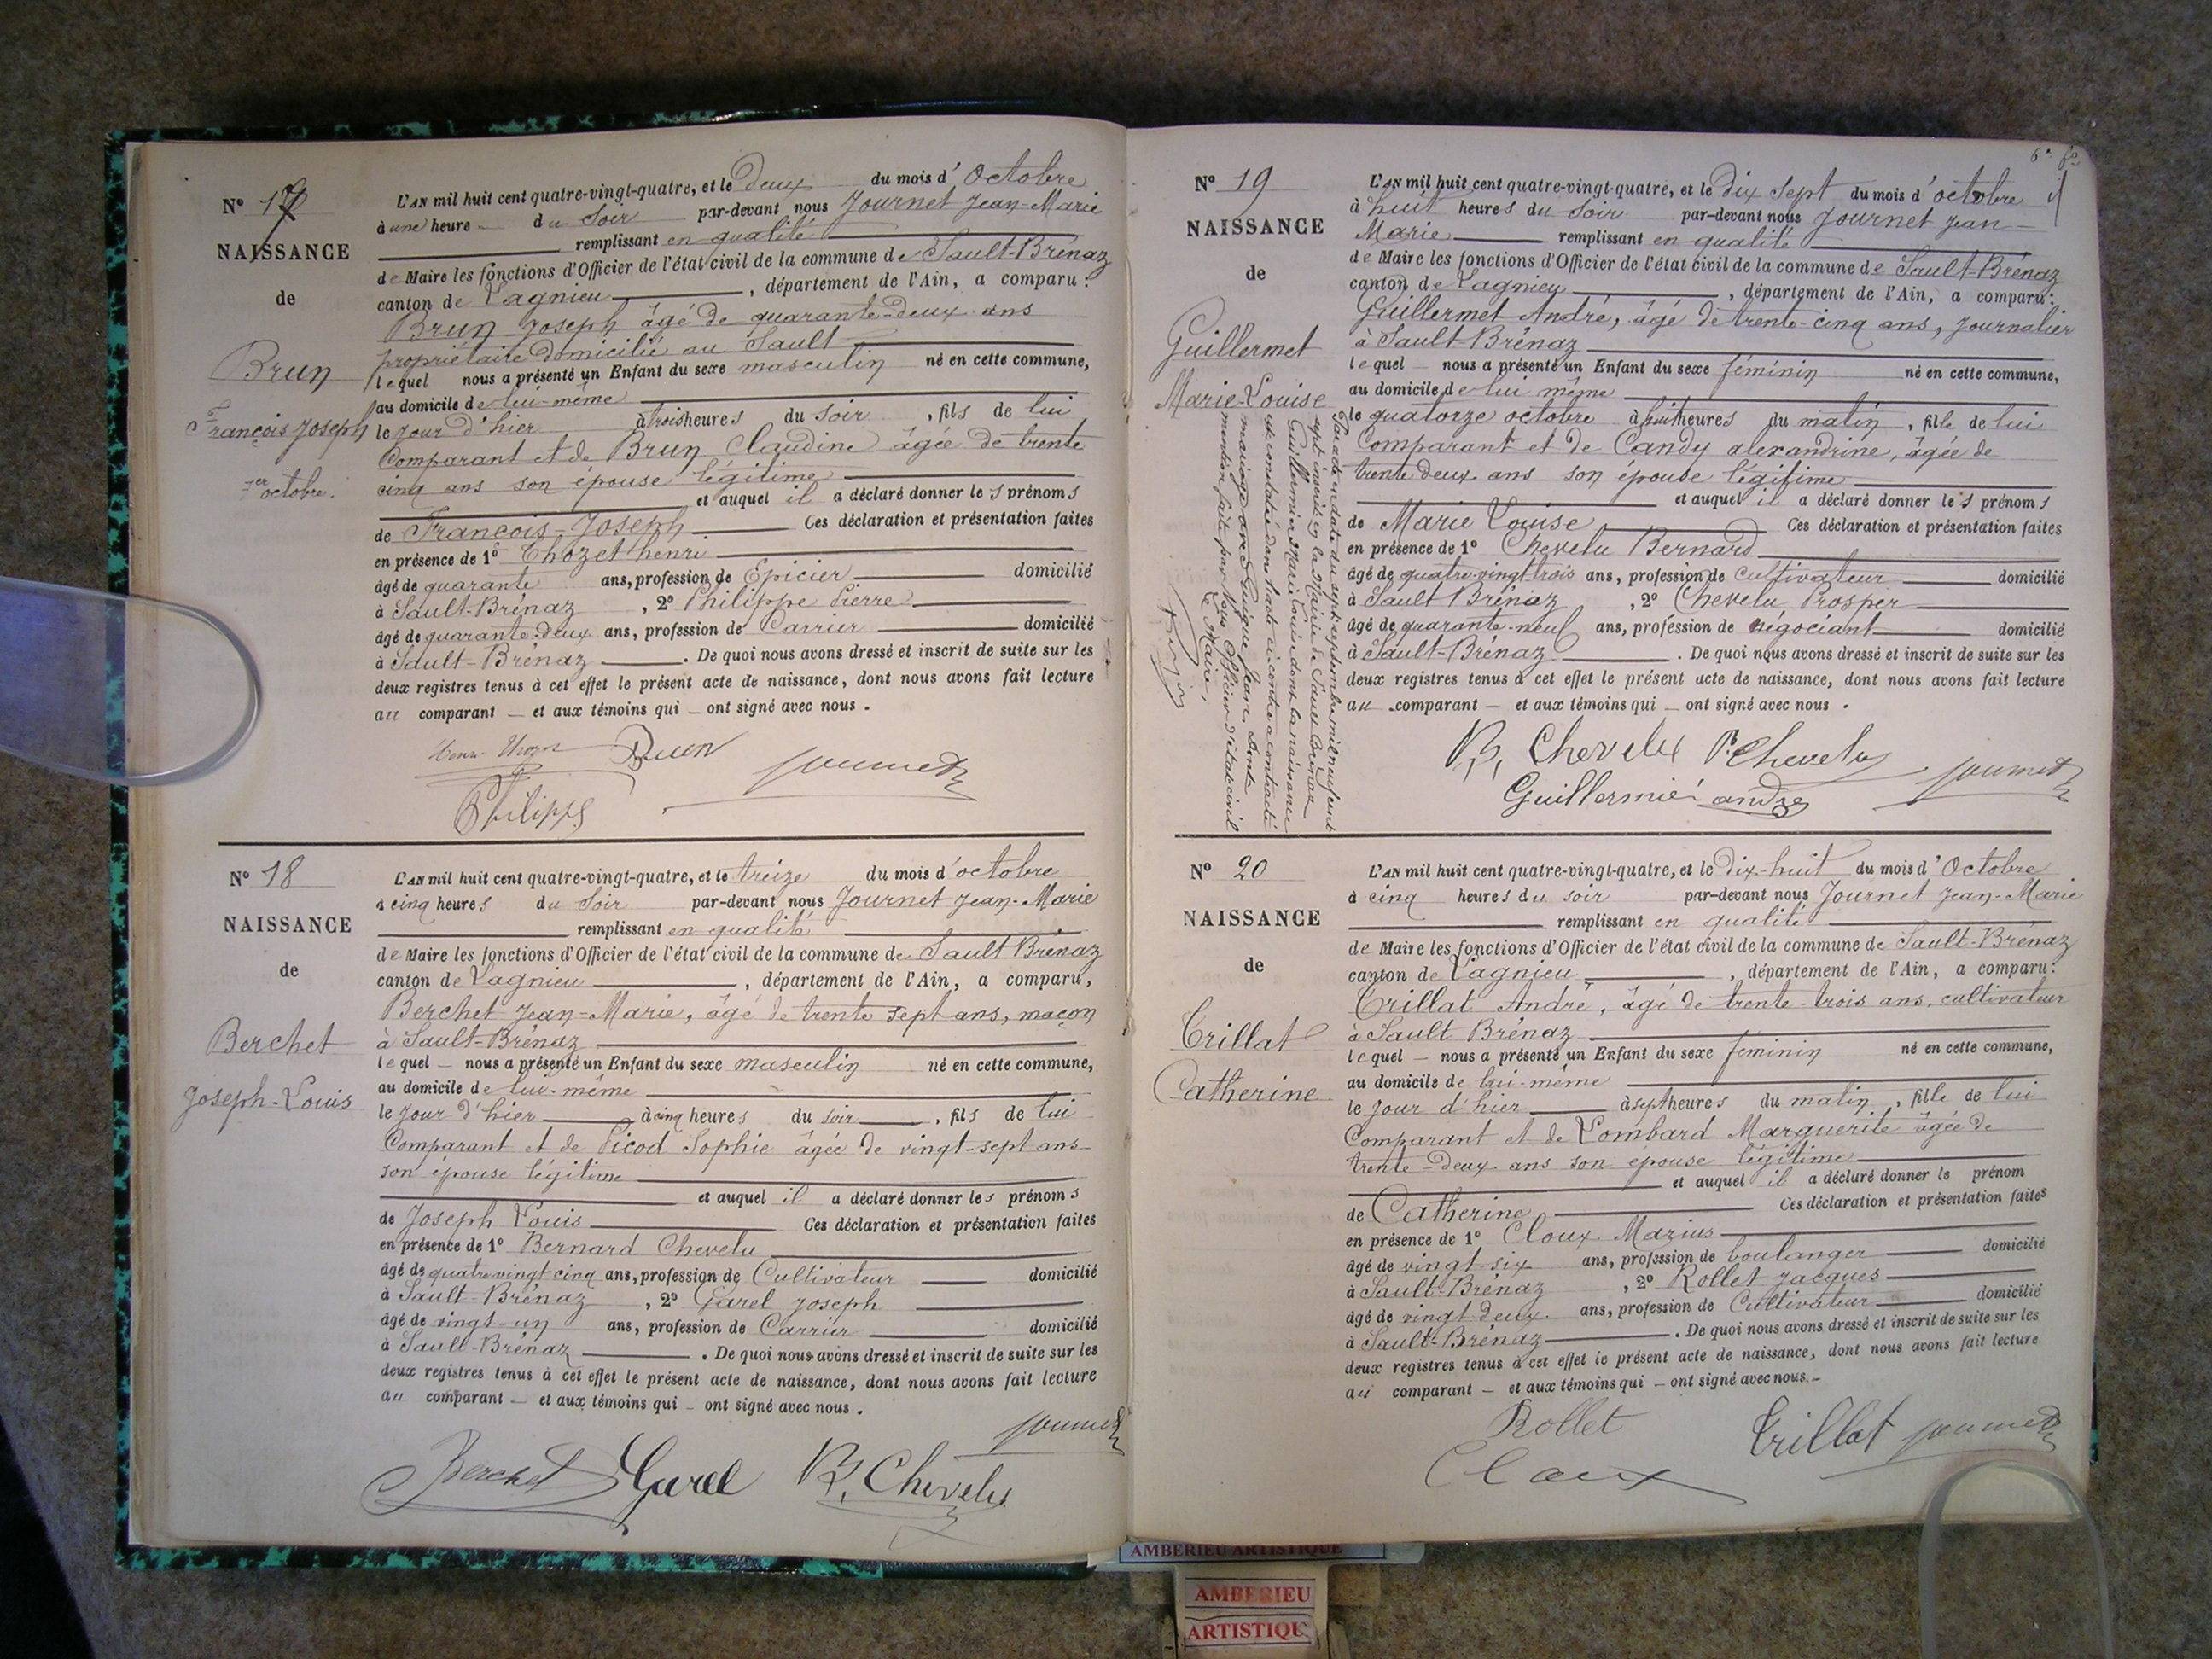 N° 17
NAISSANCE
de
Brun
François Joseph
1er octobre.
L'AN mil huit cent quatre-vingt-quatre, et le deux du mois d'Octobre
à une heure du Soir par-devant nous Journet Jean-Marie
remplissant en qualité
de Maire les fonctions d'Officier de l'état civil de la commune de Sault-Brénaz
canton de Lagnieu, département de l'Ain, a comparu :
Brun Joseph âgé de quarante-deux ans
propriétaire domicilié au Sault
lequel nous a présenté un Enfant du sexe masculin né en cette commune,
au domicile de lui-même
le jour d'hier à trois heures du Soir, fils de lui
Comparant et de Brun Claudine âgée de trente
cinq ans son épouse légitime
et auquel il a déclaré donner les prénoms
de François-Joseph Ces déclaration et présentation faites
en présence de 1° Thozet henri
âgé de quarante ans, profession de Epicier domicilié
à Sault-Brénaz, 2° Philippe Pierre
âgé de quarante-deux ans, profession de Carrier domicilié
à Sault-Brénaz. De quoi nous avons dressé et inscrit de suite sur les
deux registres tenus à cet effet le présent acte de naissance, dont nous avons fait lecture
au comparant — et aux témoins qui — ont signé avec nous.
Brun Journet
Philippe
N° 18
NAISSANCE
de
Berchet
Joseph-Louis
L'AN mil huit cent quatre-vingt-quatre, et le treize du mois d'octobre
à cinq heures du Soir par-devant nous Journet Jean-Marie
remplissant en qualité
de Maire les fonctions d'Officier de l'état civil de la commune de Sault Brénaz
canton de Lagnieu, département de l'Ain, a comparu,
Berchet Jean-Marie, âgé de trente sept ans, maçon
à Sault-Brénaz
lequel — nous a présenté un Enfant du sexe masculin né en cette commune,
au domicile de lui-même
le jour d'hier à cinq heures du soir, fils de lui
Comparant et de Picod Sophie âgée de vingt-sept ans
son épouse légitime
et auquel il a déclaré donner les prénoms
de Joseph Louis Ces déclaration et présentation faites
en présence de 1° Bernard Chevelu
âgé de quatre vingt cinq ans, profession de Cultivateur domicilié
à Sault-Brénaz, 2° Garel Joseph
âgé de vingt-un ans, profession de Carrier domicilié
à Sault-Brénaz. De quoi nous avons dressé et inscrit de suite sur les
deux registres tenus à cet effet le présent acte de naissance, dont nous avons fait lecture
au comparant — et aux témoins qui — ont signé avec nous.
Journet
Berchet Garel B. Chevelu
N° 19
NAISSANCE
de
Guillermet
Marie-Louise
L'AN mil huit cent quatre-vingt-quatre, et le dix sept du mois d'octobre
à huit heures du Soir par-devant nous Journet Jean
Marie remplissant en qualité
de Maire les fonctions d'Officier de l'état civil de la commune de Sault-Brénaz
canton de Lagnieu, département de l'Ain, a comparu :
Guillermet André, âgé de trente-cinq ans, Journalier
à Sault-Brénaz
lequel — nous a présenté un Enfant du sexe féminin né en cette commune,
au domicile de lui même
le quatorze octobre à huit heures du matin, fille de lui
Comparant et de Candy alexandrine, âgée de
trente deux ans son épouse légitime
et auquel il a déclaré donner les prénoms
de Marie Louise Ces déclaration et présentation faites
en présence de 1° Chevelu Bernard
âgé de quatre-vingt trois ans, profession de Cultivateur domicilié
à Sault Brénaz, 2° Chevelu Prosper
âgé de quarante-neuf ans, profession de négociant domicilié
à Sault-Brénaz. De quoi nous avons dressé et inscrit de suite sur les
deux registres tenus à cet effet le présent acte de naissance, dont nous avons fait lecture
au comparant — et aux témoins qui — ont signé avec nous.
B. Chevelu P. Chevelu Journet
Guillermié andré
Par acte en date du sept septembre mil neuf cent
sept inscrit en la Mairie de Sault-Brénaz
Guillermier Marie Louise dont la naissance
est constatée dans l'acte ci-contre a contracté
mariage avec Jean. Dont
mention faite par Nous Officier d'état civil
Le Maire,
N° 20
NAISSANCE
de
Trillat
Catherine
L'AN mil huit cent quatre-vingt-quatre, et le Dix-huit du mois d'Octobre
à cinq heures du soir par-devant nous Journet Jean-Marie
remplissant en qualité
de Maire les fonctions d'Officier de l'état civil de la commune de Sault-Brénaz
canton de Lagnieu, département de l'Ain, a comparu :
Trillat André, âgé de trente-trois ans, cultivateur
à Sault Brénaz
lequel — nous a présenté un Enfant du sexe féminin né en cette commune,
au domicile de lui-même
le jour d'hier à sept heures du matin, fille de lui
Comparant et de Lombard Marguerite âgée de
trente-deux ans son épouse légitime
et auquel il a déclaré donner le prénom
de Catherine Ces déclaration et présentation faites
en présence de 1° Cloux Marius
âgé de vingt-six ans, profession de boulanger domicilié
à Sault-Brénaz, 2° Rollet Jacques
âgé de vingt deux ans, profession de Cultivateur domicilié
à Sault-Brénaz. De quoi nous avons dressé et inscrit de suite sur les
deux registres tenus à cet effet le présent acte de naissance, dont nous avons fait lecture
au comparant — et aux témoins qui — ont signé avec nous.
Rollet Trillat Journet
Cloux
AMBERIEU ARTISTIQUE
AMBERIEU
ARTISTIQU